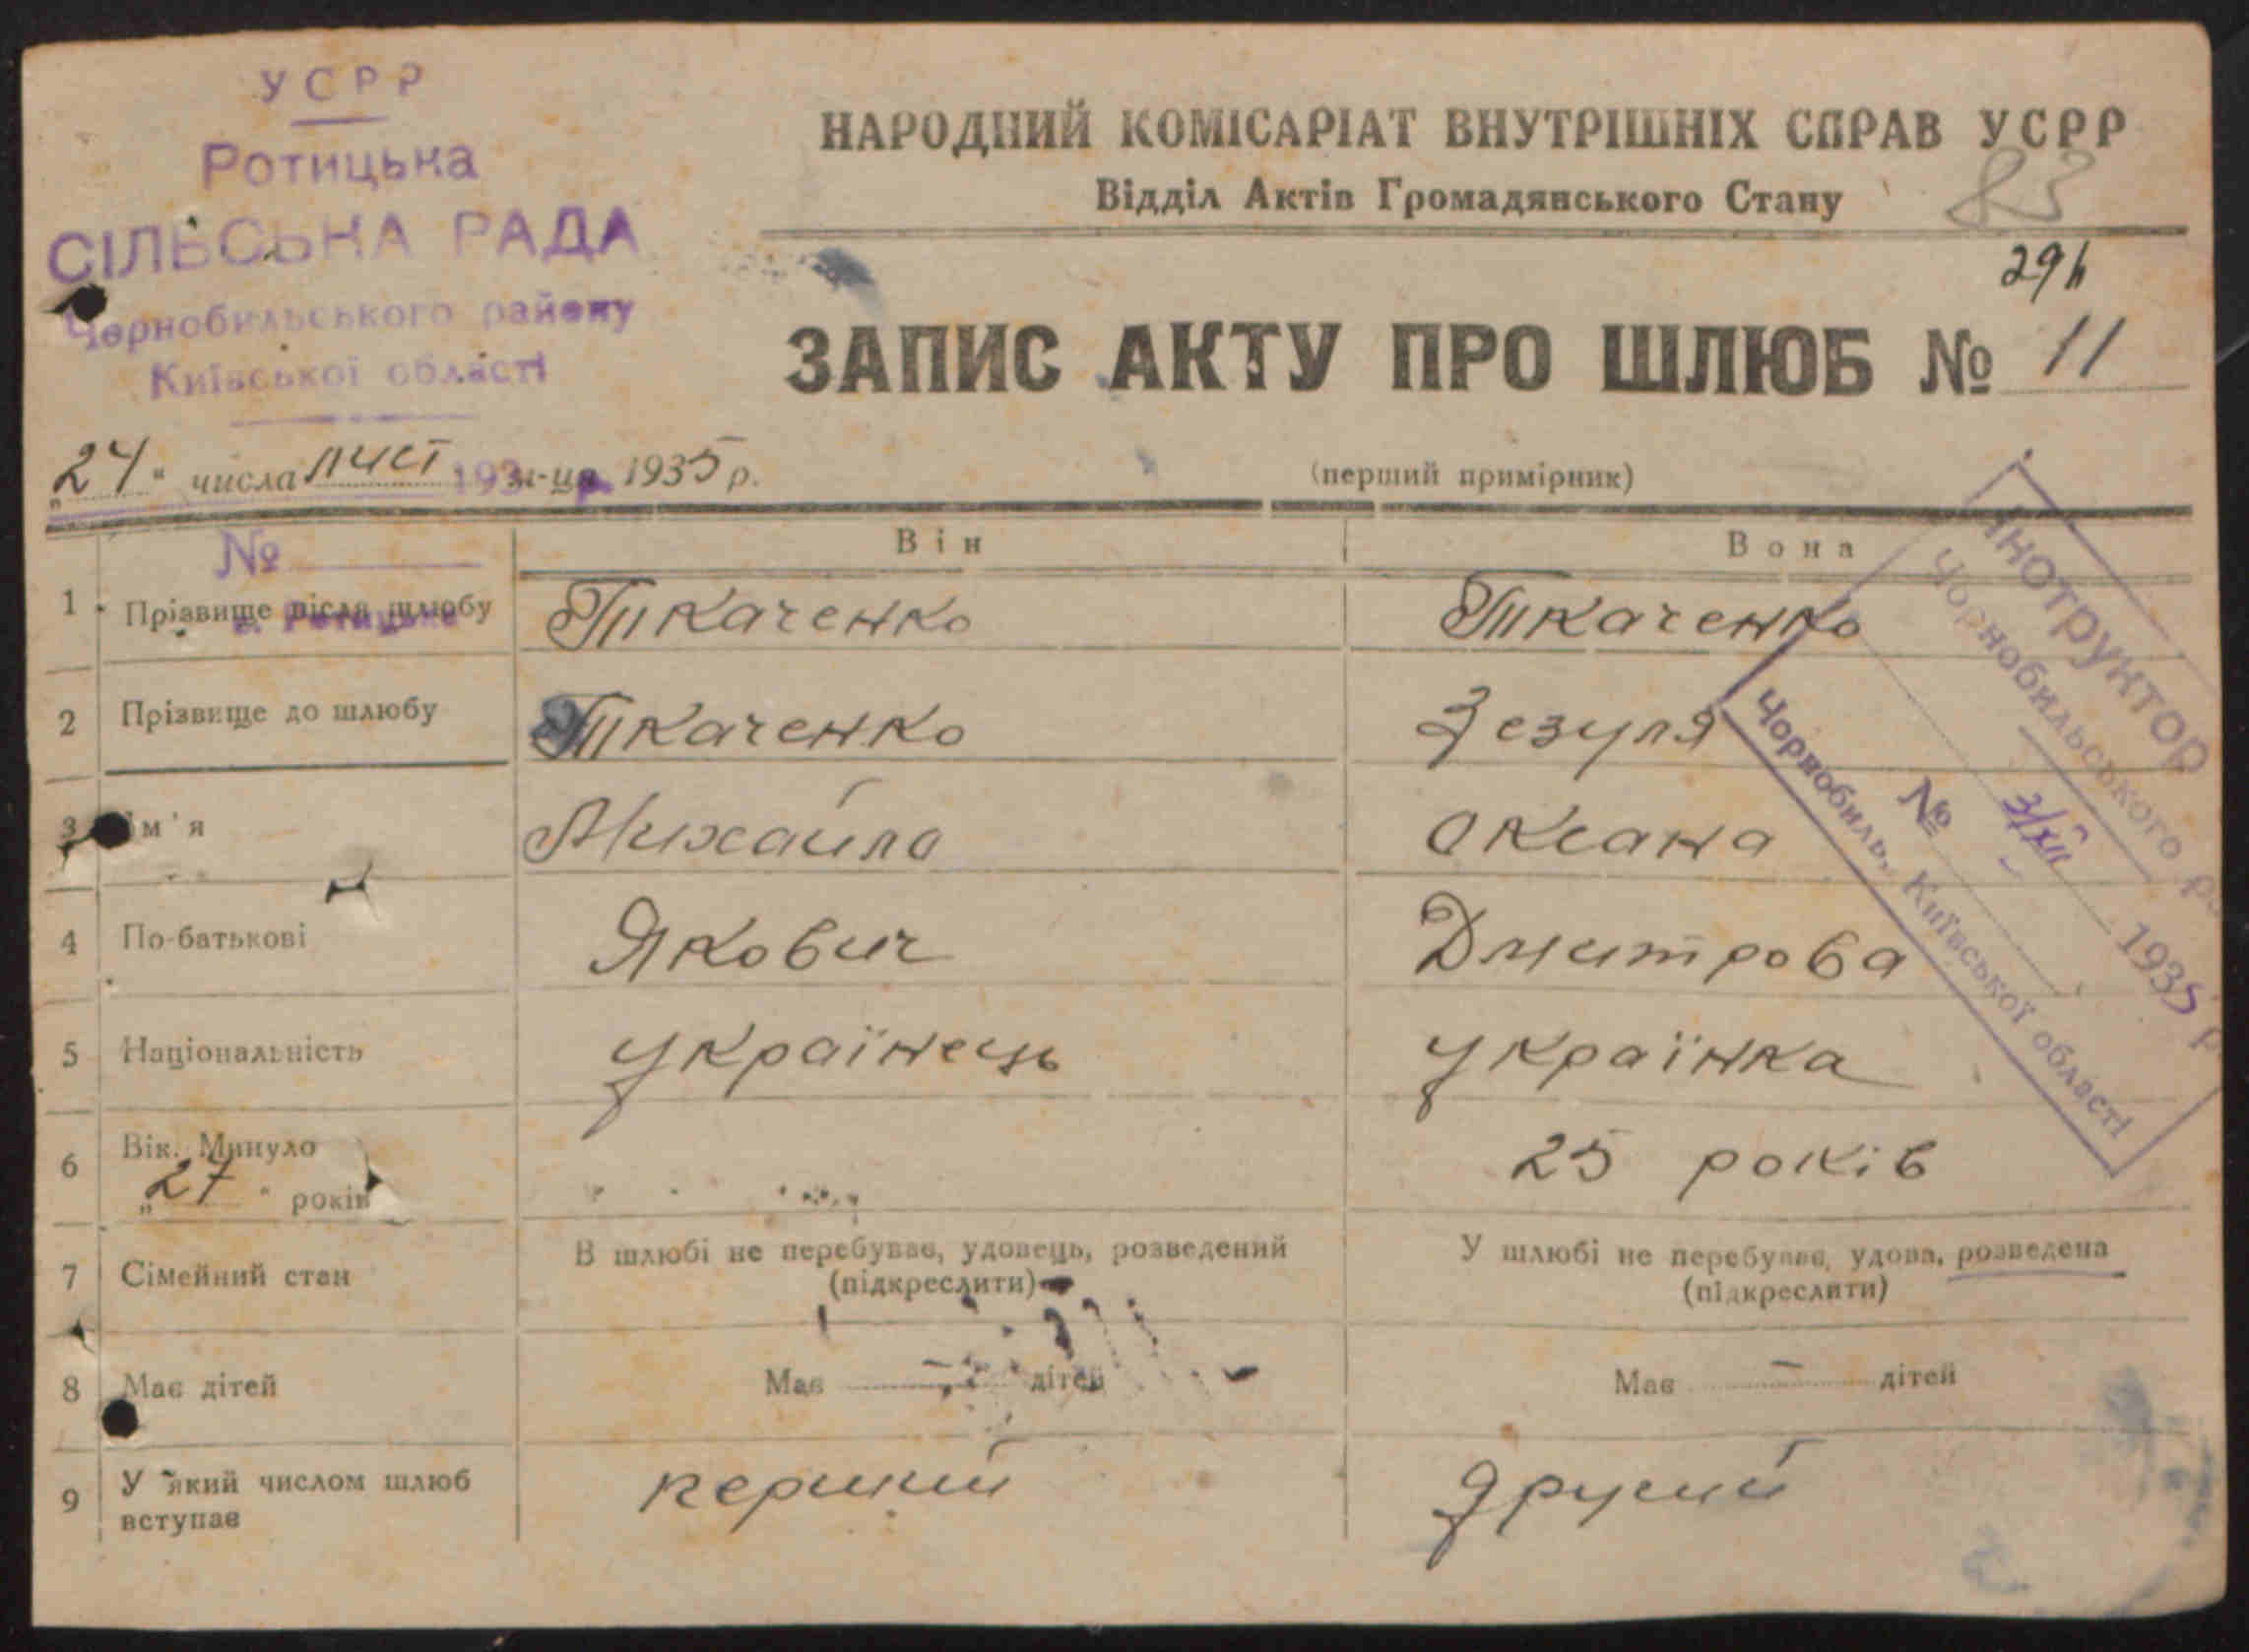 УСРР
Ротицька
СІЛЬСЬКА РАДА
Чорнобильського району
Київської області
НАРОДНИЙ КОМІСАРІАТ ВНУТРІШНІХ СПРАВ УСРР
Відділ Актів Громадянського Стану
83
29
ЗАПИС АКТУ ПРО ШЛЮБ № 11
„24“ числа лист м-ця 1935 р.
193 р.
(перший примірник)
№
Він
Вона
1 Прізвище після шлюбу Ткаченко Ткаченко
2 Прізвище до шлюбу Ткаченко Зезуля
3 Ім'я Михайло Оксана
4 По-батькові Якович Дмитрова
5 Національність українець українка
6 Вік. Минуло „27“ років 25 років
7 Сімейний стан
В шлюбі не перебуває, удовець, розведений
(підкреслити)
У шлюбі не перебуває, удова, розведена
(підкреслити)
8 Має дітей Має – дітей Має – дітей
9 У який числом шлюб
вступає
перший
другий
Інструктор
Чорнобильського
№
3/XII 1935 р
Чорнобиль, Київської області